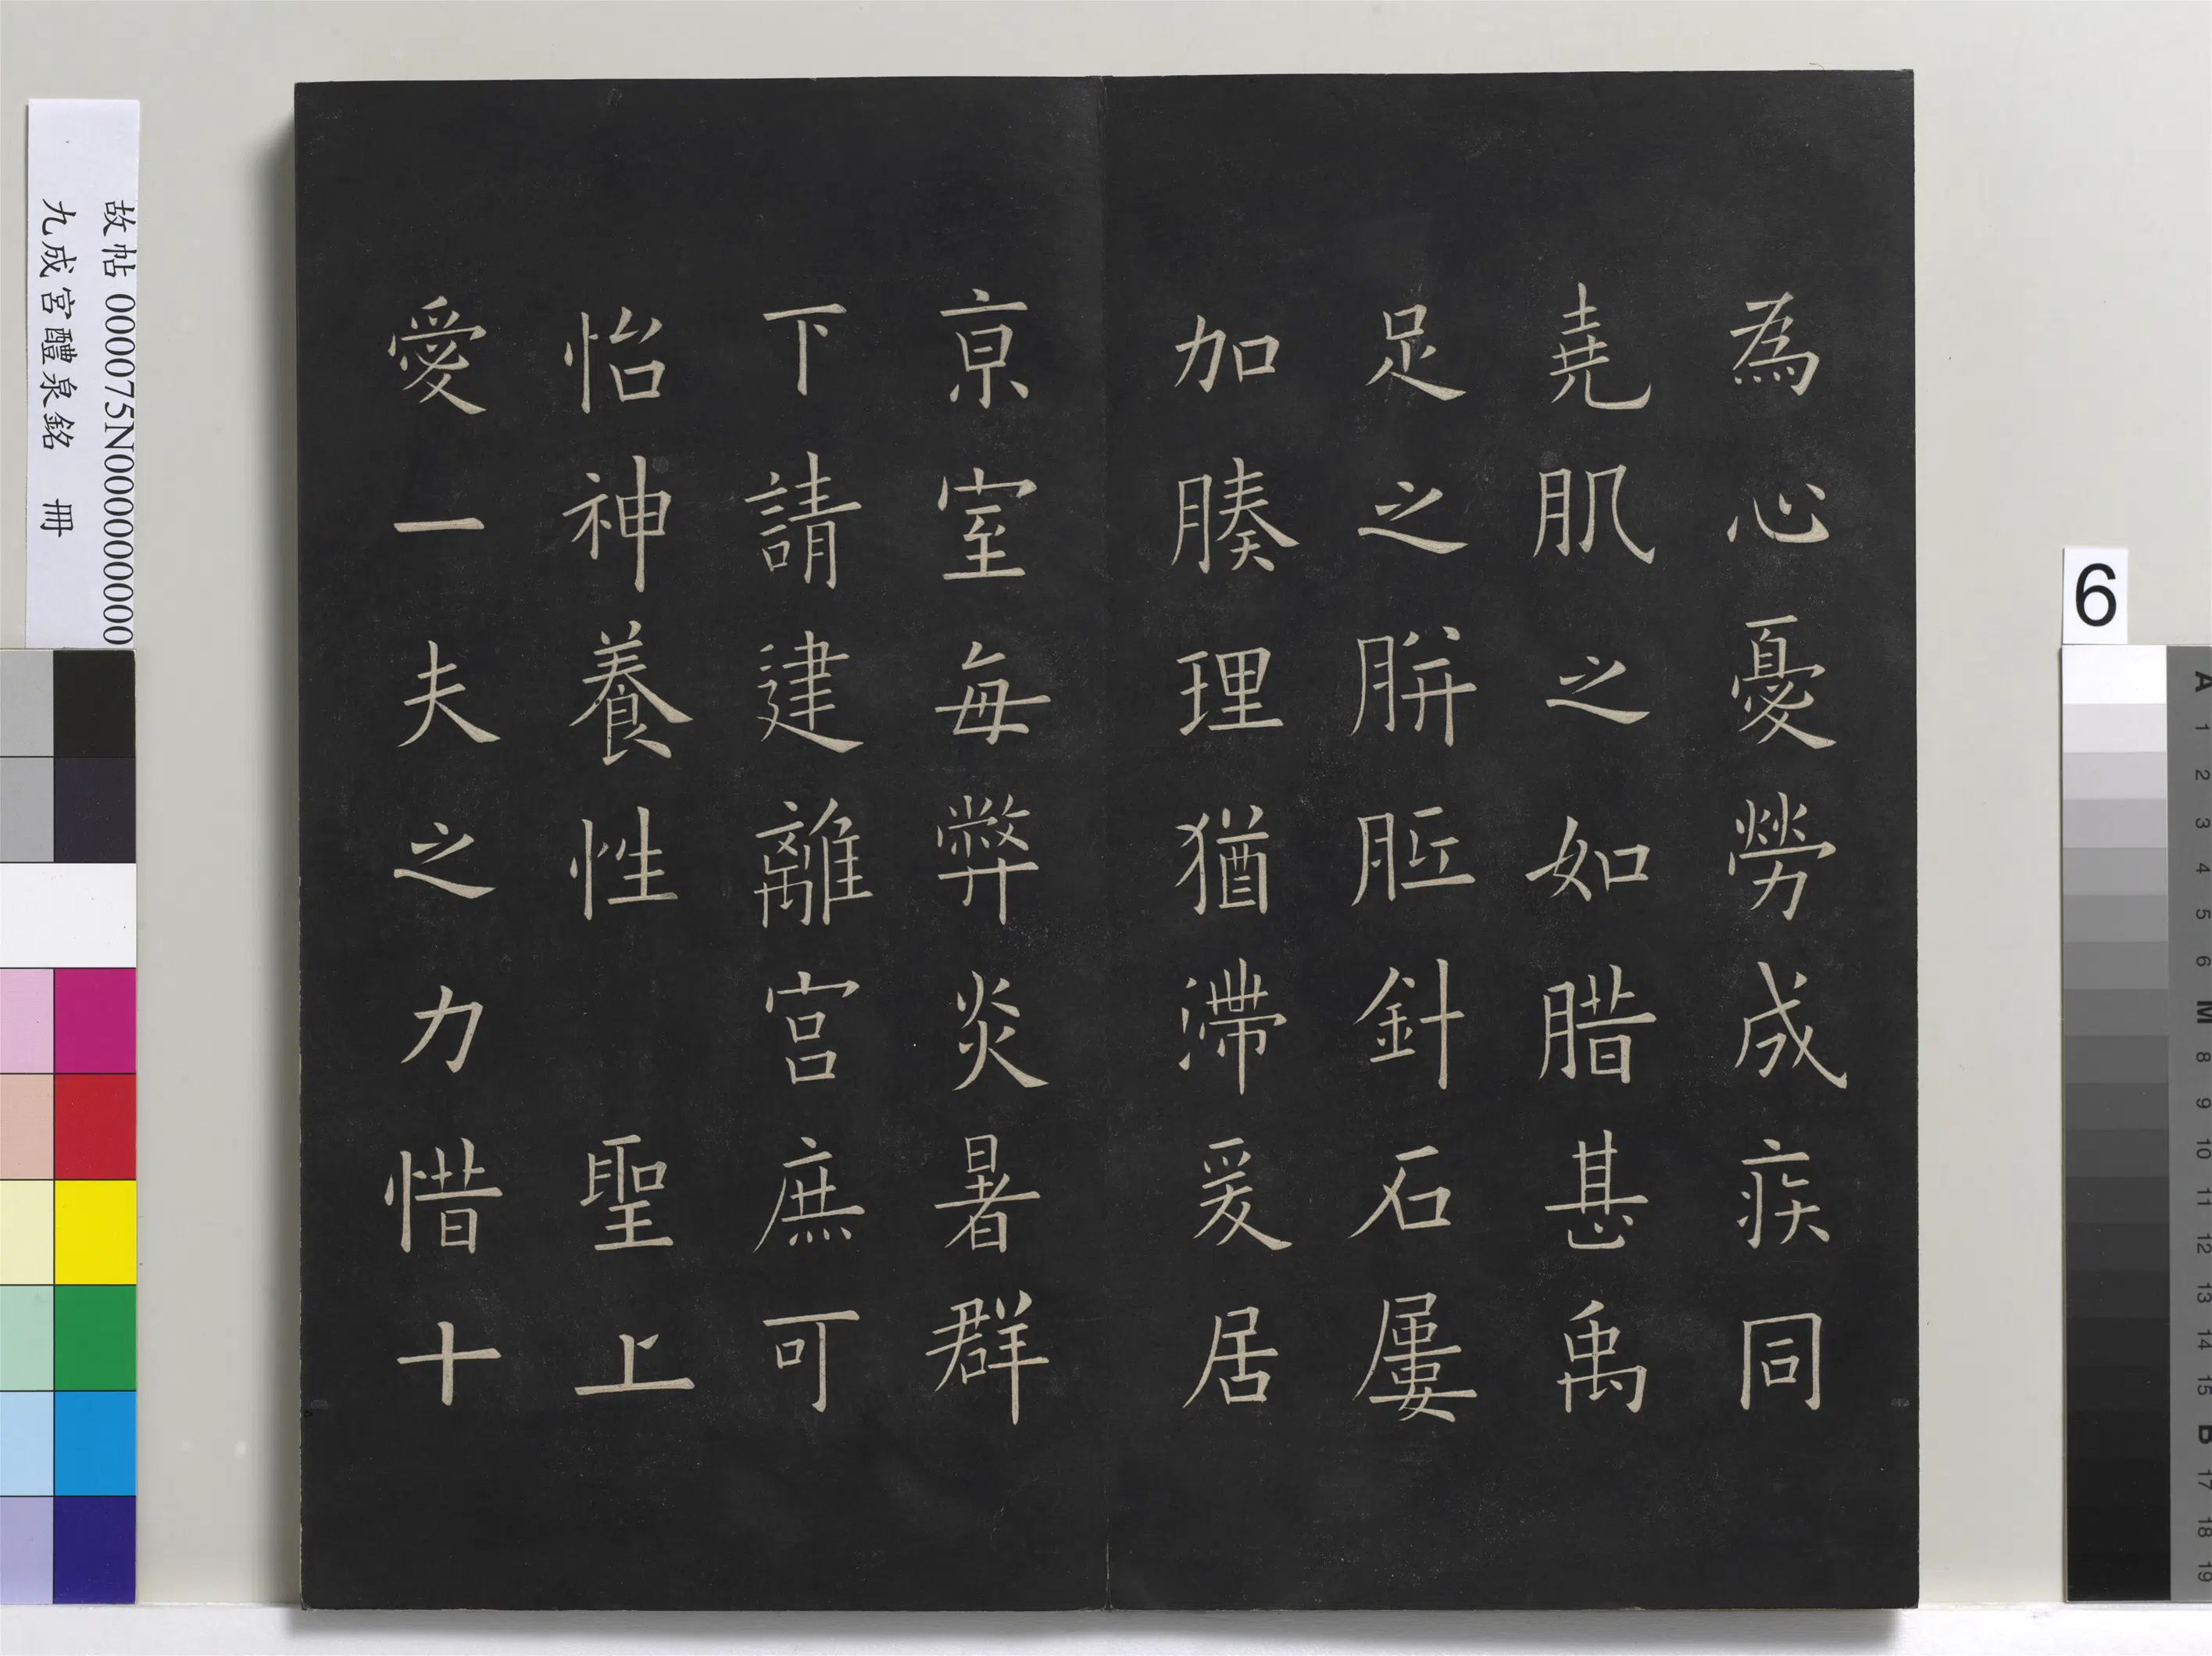 為心憂勞成疾同
堯肌之如腊甚禹
足之胼胝針石屢
加腠理猶滯爰居
京室每弊炎暑群
下請建離宮庶可
怡神養性 聖上
愛一夫之力惜十
故帖 000075N000000000
九成宮醴泉銘 冊
6
A 1 2 3 4 5 6 M 8 9 10 11 12 13 14 15 B 17 18 19